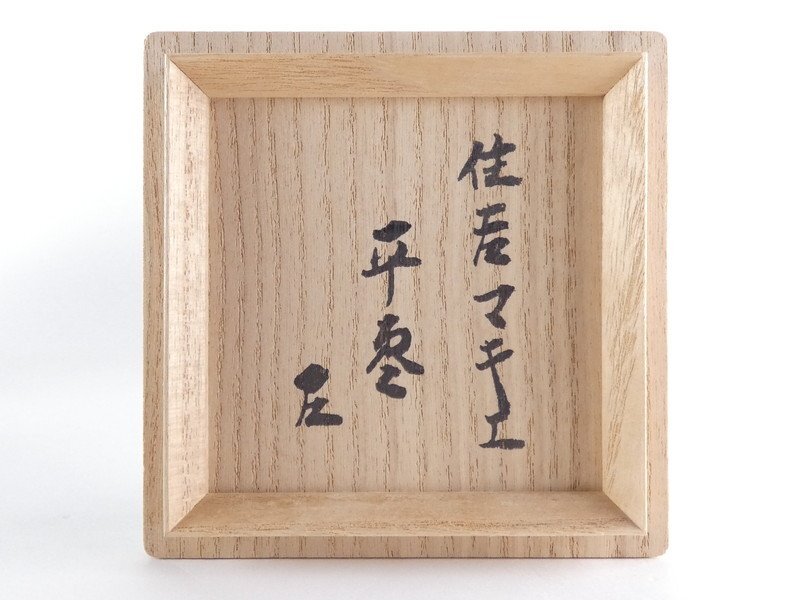 住吉マキエ
平棗
左